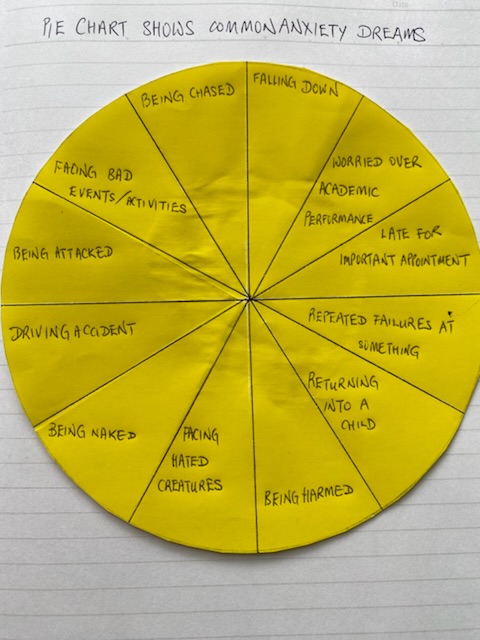 PIE CHART SHOWS COMMON ANXIETY DREAMS
FALLING DOWN
WORRIED OVER
ACADEMIC
PERFORMANCE
LATE FOR
IMPORTANT APPOINTMENT
REPEATED FAILURES AT
SOMETHING
RETURNING
INTO A
CHILD
BEING HARMED
FACING
HATED
CREATURES
BEING NAKED
DRIVING ACCIDENT
BEING ATTACKED
FACING BAD
EVENTS/ACTIVITIES
BEING CHASED